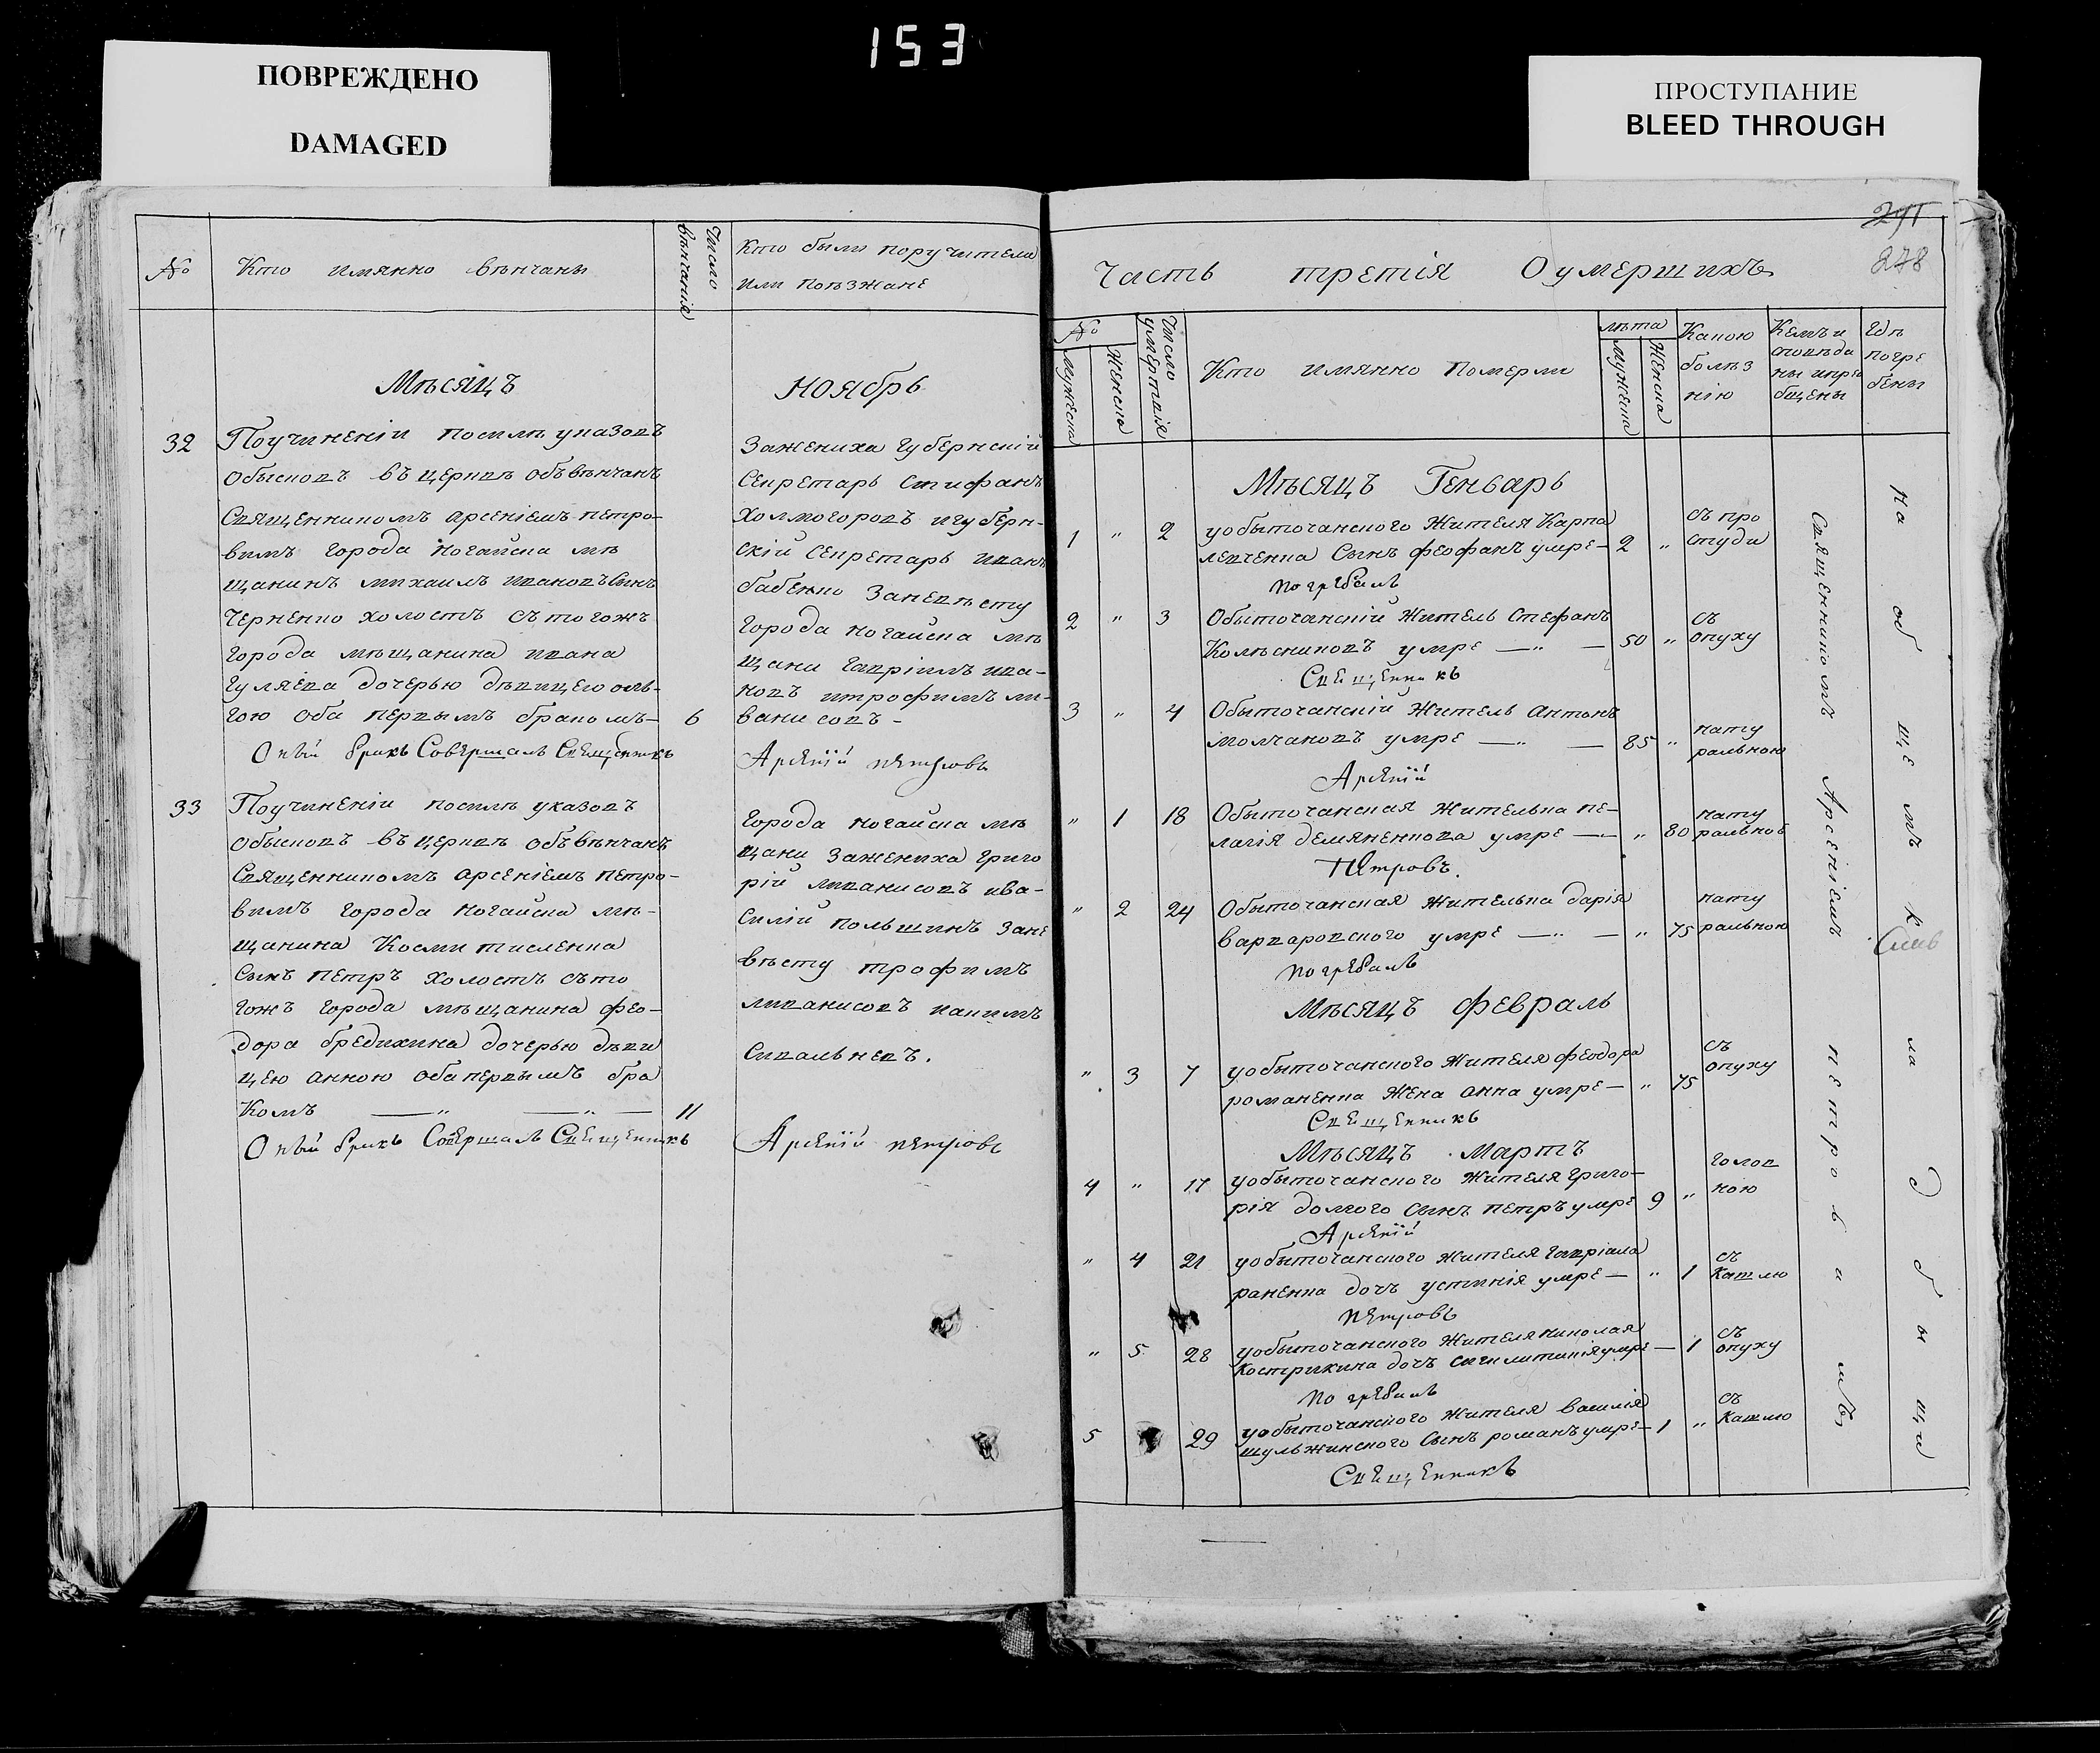 153
ПОВРЕЖДЕНО
DAMAGED
ПРОСТУПАНИЕ
BLEED THROUGH
№
Кто имянно вѣнчаны
Число вѣнчанія
Кто были поручители
или поѣзжанѣ
Мѣсяцъ
Ноябрь
32
Поучиненіи посилѣ указовъ
обысковъ въ церквѣ обвѣнчанъ
Священникомъ Арсеніемъ Петро-
вимъ города Ногайска мѣ
щанинъ михаилъ ивановъ Сынъ
Черненко холостъ съ тогожъ
города мѣщанина ивана
Гуляева дочерью дѣвицею оль-
гою оба первымъ бракомъ-
6
Оный бракъ Совершалъ Священникъ
Зажениха Губернскій
Секретарь Стифанъ
Холмогоровъ игуберн-
скій Секретарь иванъ
бабенко Заневѣсту
города Ногайска мѣ
щани гавріилъ ива-
новъ итрофимъ ли-
ванисовъ-
Арсеній Петровъ
33
Поучиненіи посилѣ указовъ
обысковъ въ церквѣ обвѣнчанъ
Священникомъ Арсеніемъ Петро-
вимъ города Ногайска мѣ-
щанина Косми тисленка
Сынъ Петръ холостъ съто
гожъ города мѣщанина фео-
дора бредихина дочерью дѣви
цею анною оба первымъ бра
комъ
11
Оный бракъ Совершалъ Священникъ
города Ногайска мѣ
щани Зажениха григо
рій ливанисовъ ива-
силій польшинъ Зане
вѣсту трофимъ
ливанисовъ
Сипальневъ.
Арсеній Петровъ
278
Часть третія Оумершихъ
№
Мужеска
Женска
Число умертвія
Кто имянно померли
лѣта
Мужеска
Женска
Какою
болѣз
нію
Кемъ и
споведа
ны ипрі
общены
Гдѣ
погре
бены
Мѣсяцъ Генварь
1 " 2 уобыточанского Жителя Карпа
левченка Сынъ феофанъ умре- 2 "
съ про
студи
погребалъ
2 " 3 Обыточанскій Житель Стефанъ
Колѣсниковъ умре —"— 50 "
съ
опуху
Священникъ
3 " 4 Обыточанскій Житель антонъ
молчановъ умре —"— 85 "
нату
ральною
Арсеній
" 1 18 Обыточанская Жителька пе-
лагія демяненкова умре — " 80
нату
ральной
Петровъ.
" 2 24 Обыточанская Жителька дарія
варваровского умре —"— " 75
нату
ральною
погребалъ
Мѣсяцъ февраль
" 3 7 уобыточанского Жителя феодора
романенка Жена анна умре — " 75
съ
опуху
Священникъ
Мѣсяцъ Мартъ
4 " 17 уобыточанского Жителя григо-
рія долгого Сынъ петръ умре 9 "
голов
ною
Арсеній
" 4 21 уобыточанского Жителя гавріила
раненка дочъ устинія умре — " 1
съ
Кашлю
Петровъ
" 5 28 уобыточанского Жителя николая
Кострикина дочъ умре — 1
съ
опуху
погребалъ
5 29 уобыточанского Жителя василія
шульжинского Сынъ романъ умре- 1 "
съ
Кашлю
Священникъ
Священникомъ Арсеніемъ Петровимъ
На общемъ кладбищи